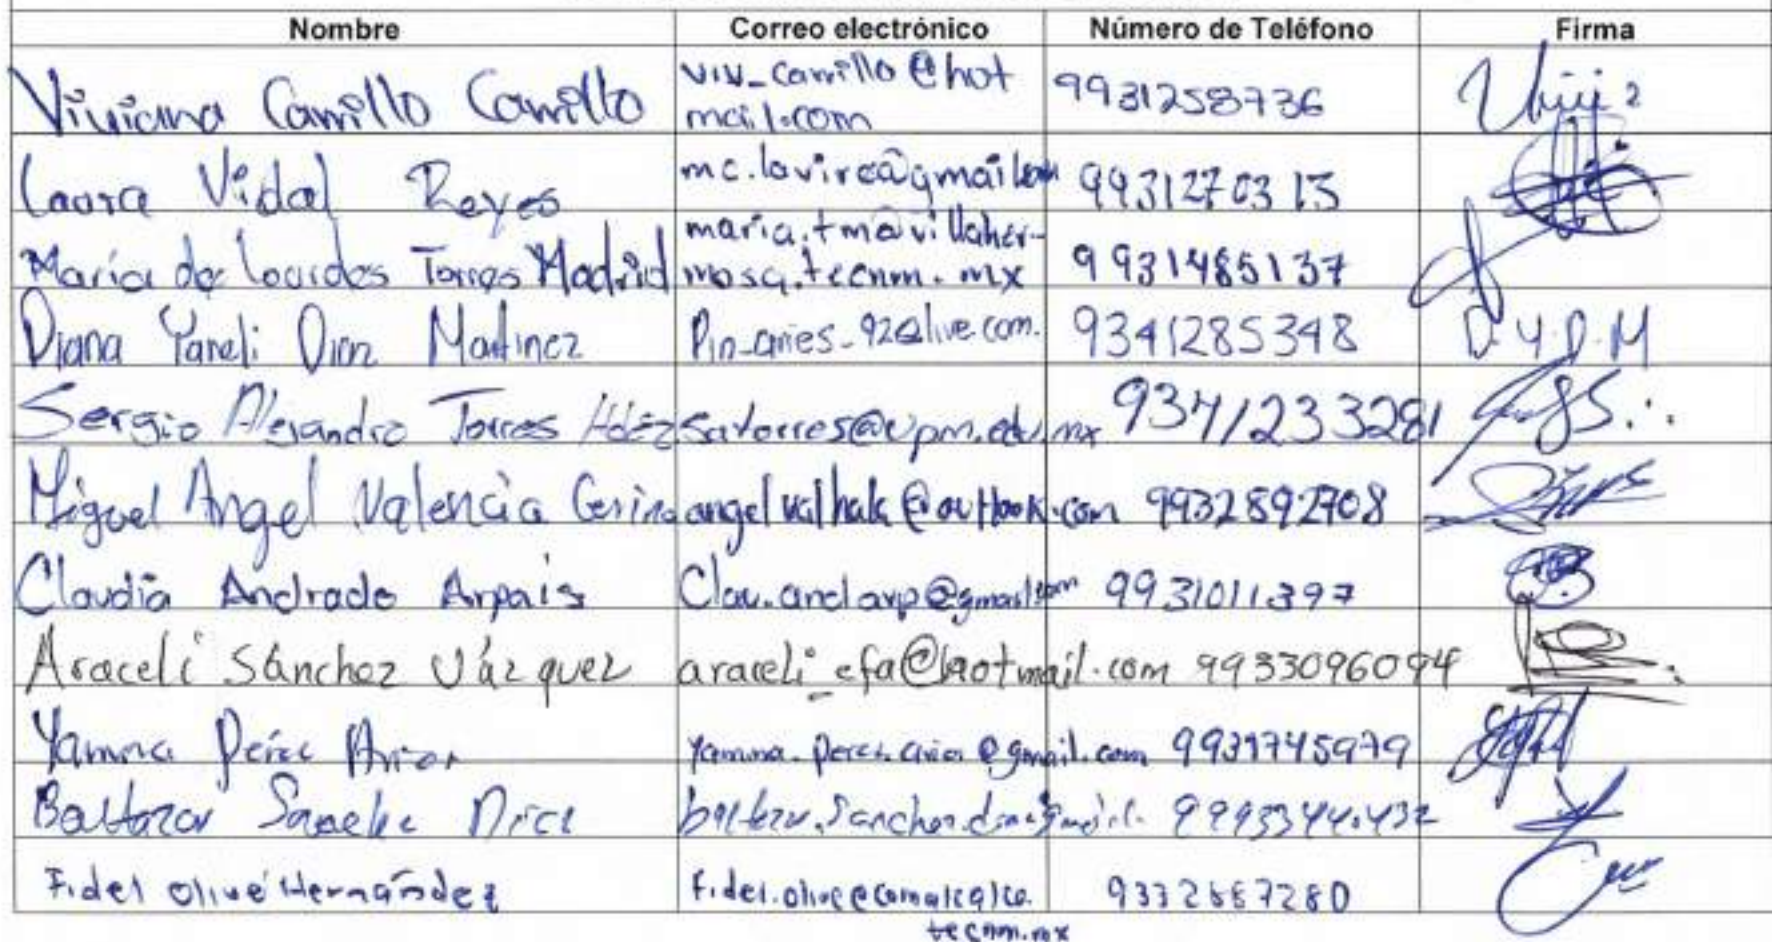 Nombre Correo electrónico Número de Teléfono Firma
Viviana Carrillo Carrillo viv_carrillo@hot 9931258736
mail.com
Laura Vidal Reyes mc.lavire@gmail.com 9931270313
María de Lourdes Torres Madrid maria.tm@villaher- 9931485137
mosa.tecnm.mx
Diana Yareli Diaz Martinez Pin_aries_92@live.com. 9341285348 D.Y.D.M
Sergio Alejandro Torres Hdez satorres@upm.edu.mx 9341233281
Miguel Angel Valencia Cerino angelvalhala@outlook.com 9932892708
Claudia Andrade Arpais Clau.andarp@gmail.com 9931011397
Araceli Sánchez Vázquez araceli_efa@hotmail.com 9933096094
Yamna Pérez @gmail.com 9931745979
Baltazar
Fidel Olivé Hernández fidel.olive@comalcalco.
tecnm.mx